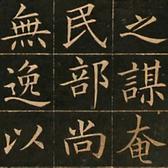 之謀奄
民部尚
無逸以